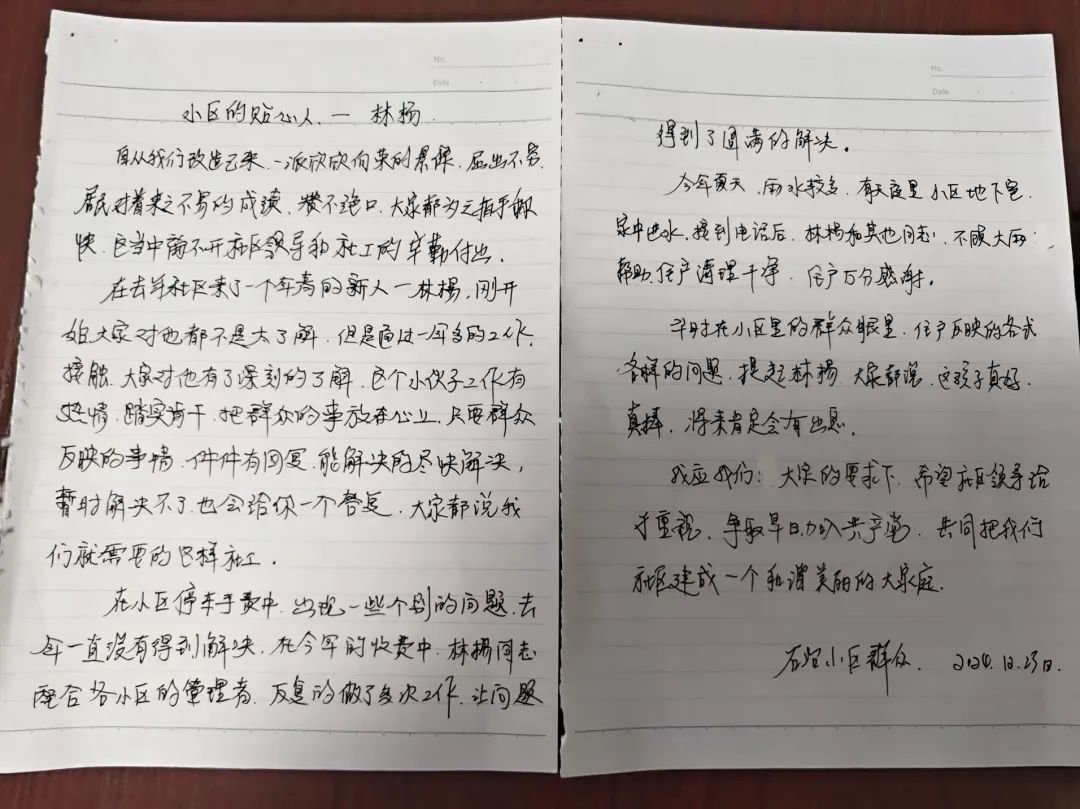 No.
Date
小区的贴心人 — 林杨
自从我们改造已来、一派欣欣向荣的景像、
居民对着来之不易的成绩、赞不绝口、大家都为之拍手
快、这当中离不开社区领导和社工的辛勤付出、
在去年社区来了一个年青的新人—林楊、刚开
始大家对他都不是太了解、但是通过一年多的工作、
接触、大家对他有了深刻的了解、这个小伙子工作有
热情、踏实肯干、把群众的事放在心上、只要群众
反映的事情、件件有回复、能解决的尽快解决,
暂时解决不了、也会给你一个答复、大家都说我
们就需要的这样社工。
在小区停车手费中、出现一些个别的问题、去
年一直没有得到解决、在今年的收费中、林楊同志
配合各小区的管理者、反复的做了多次工作、让问题
No.
Date
得到了圆满的解决。
今年夏天、雨水较多、有天夜里小区地下室、
家中进水、接到电话后、林楊和其他同志、不顾大雨
帮助住户清理干净、住户万分感谢。
平时在小区里的群众眼里、住户反映的各式
各样的问题、提起林楊、大家都说、这孩子真好、
真棒、将来肯定会有出息。
我应我们:大家的要求下、希望社区领导给
于重视、争取早日加入共产党、共同把我们
社区建成一个和谐美丽的大家庭.
小区群众、2024.12.23日.